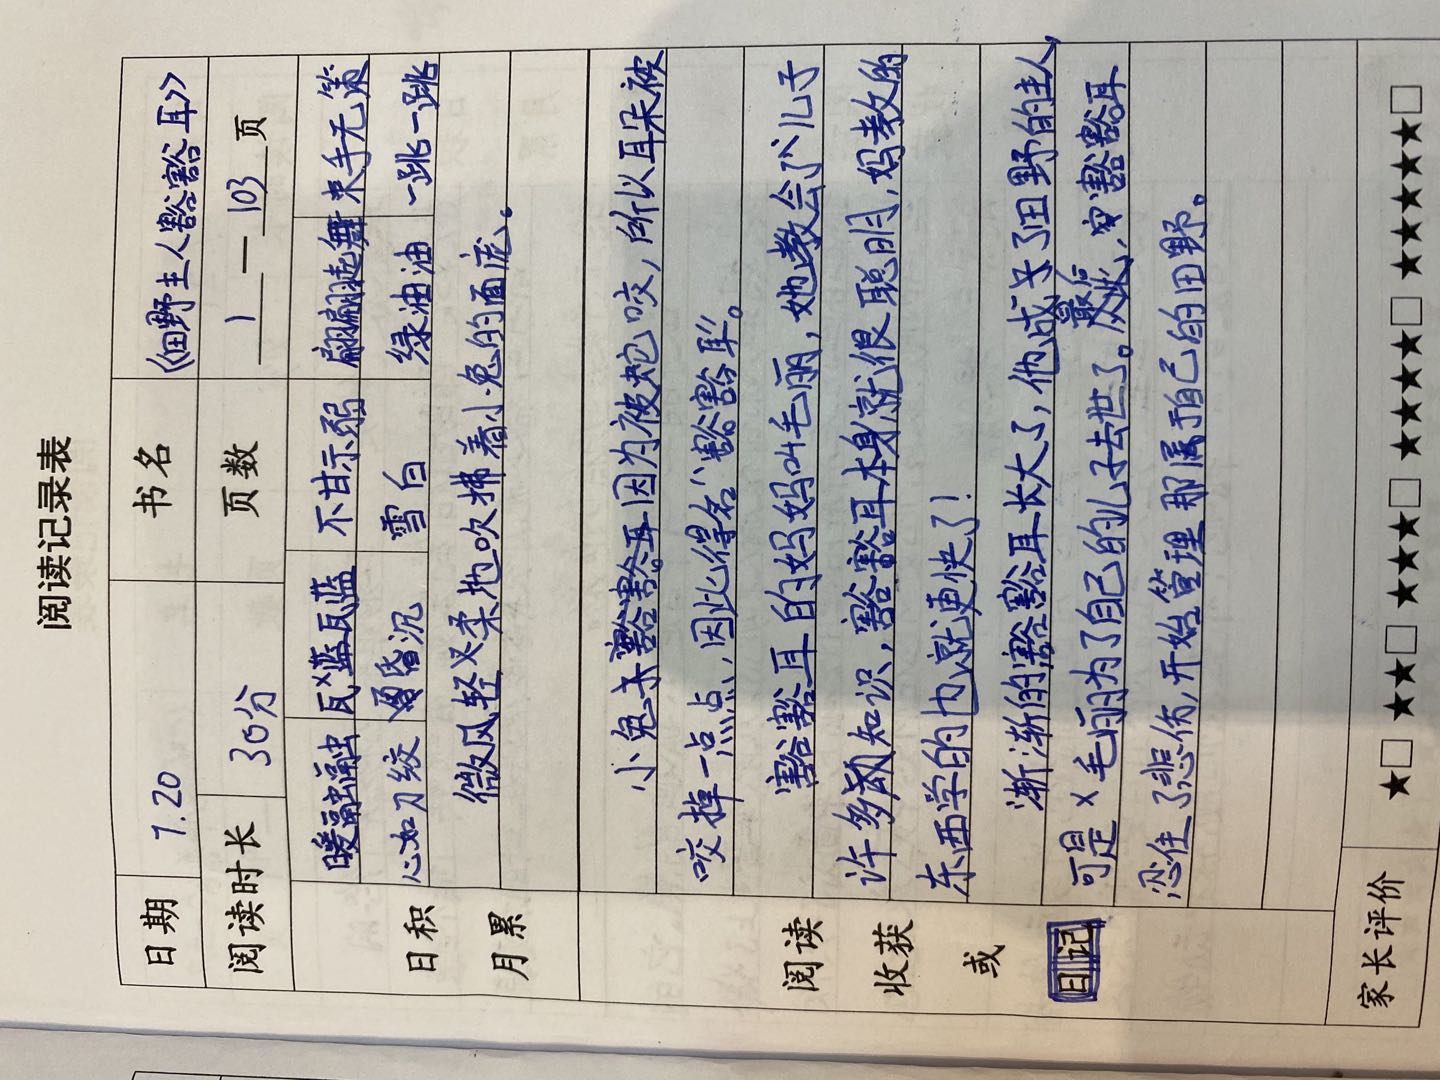 阅读记录表
日期 7.20 书名 《田野主人豁豁耳》
阅读时长 30分 页数 1—103页
日积月累
暖融融 瓦蓝瓦蓝 不甘示弱 翩翩起舞 束手无策
心如刀绞 昏沉 雪白 绿油油 一跳一跳
微风轻柔地吹拂着小兔的面庞。
阅读收获或日记
小兔子豁豁耳因为被蛇咬，所以耳朵被
咬掉一点点，因此得名“豁豁耳”。
豁豁耳的妈妈叫毛丽，她教会了儿子
许多知识，豁豁耳本身就很聪明，妈教的
东西学的也就更快了！
渐渐的豁豁耳长大了，他成了田野的主人，
可是毛丽为了自己的儿子去世了。最后，豁豁耳
忍住了悲伤，开始管理那属于自己的田野。
家长评价 ★□ ★★□ ★★★□ ★★★★□ ★★★★★□